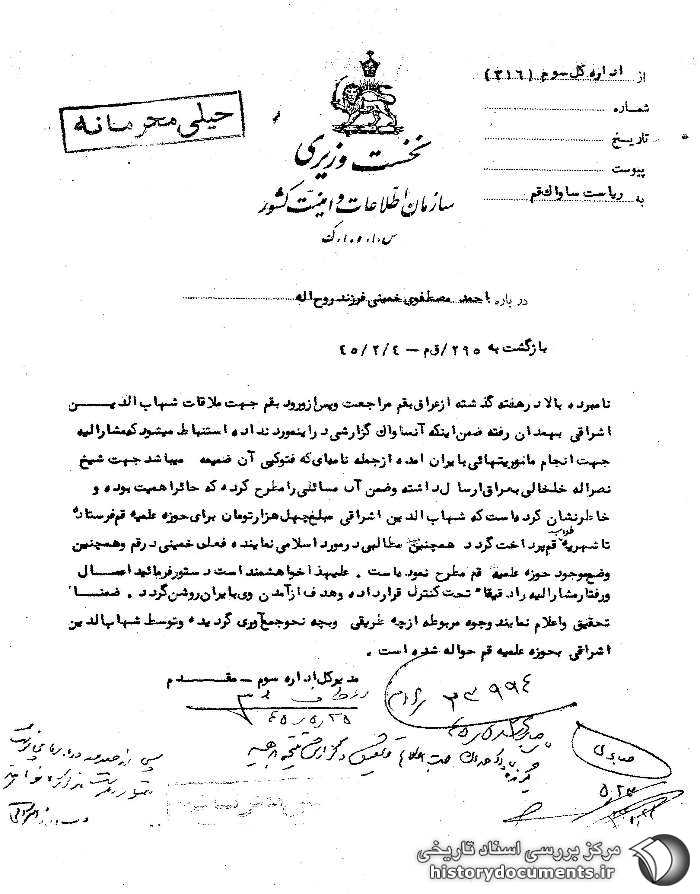 از اداره کل سوم (۳۱۶)
شماره
تاریخ
پیوست
به ریاست ساواک قم
خیلی محرمانه
نخست وزیری
سازمان اطلاعات و امنیت کشور
س.ا.و.ا.ک
درباره احمد مصطفوی خمینی فرزند روح اله
بازگشت به ۲۹۵/ق م – ۴۵/۲/۴
نامبرده بالا در هفته گذشته از عراق بقم مراجعت وپس از ورود بقم جهت ملاقات شهاب الدین
اشراقی بهمدان رفته ضمن اینکه آنساواک گزارشی در اینمورد نداده استنباط میشود که مشارالیه
جهت انجام ماموریتهائی بایران آمده از جمله نامه‌ای که فتوکپی آن ضمیمه میباشد جهت شیخ
نصراله خلخالی بعراق ارسال داشته وضمن آن مسائلی را مطرح کرده که حائز اهمیت بوده و
خاطرنشان کرده است که شهاب الدین اشراقی مبلغ چهل هزار تومان برای حوزه علمیه قم فرستاده
تا شهریه طلاب قم پرداخت گردد همچنین مطالبی در مورد اسلامی نماینده فعلی خمینی در قم وهمچنین
وضع موجود حوزه علمیه قم مطرح نموده است . علیهذا خواهشمند است دستور فرمائید اعمال
ورفتار مشارالیه را دقیقا" تحت کنترل قرار داده وهدف از آمدن وی بایران روشن گردد . ضمنا"
تحقیق واعلام نمایند وجوه مربوطه از چه طریقی وبچه نحو جمع آوری گردیده وتوسط شهاب الدین
اشراقی بحوزه علمیه قم حواله شده است .
مدیرکل اداره سوم – مقدم
۲۳۹۹۴
۴۵/۵/۲۵
۵/۲۳
مرکز بررسی اسناد تاریخی
historydocuments.ir